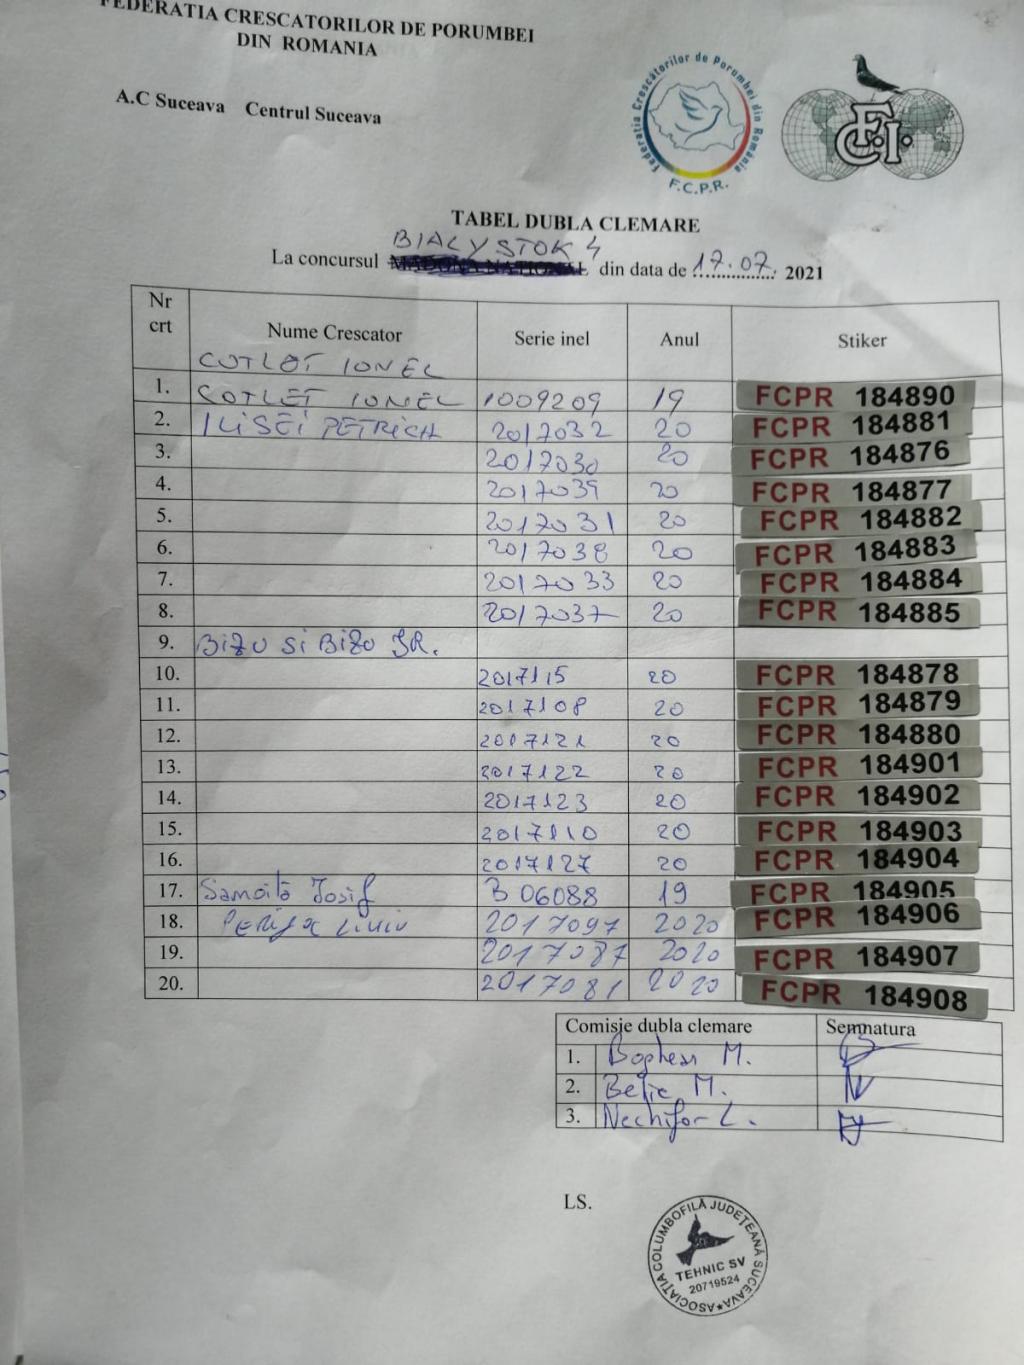 FEDERATIA CRESCATORILOR DE PORUMBEI
DIN ROMANIA
A.C Suceava Centrul Suceava
Federatia Crescătorilor de Porumbei din România
F.C.P.R.
F.C.I.
TABEL DUBLA CLEMARE
BIALYSTOK 4
La concursul MADONA NATIONAL din data de 17.07. 2021
Nr crt Nume Crescator Serie inel Anul Stiker
COTLET IONEL
1. COTLET IONEL 1009209 19 FCPR 184890
2. ILISEI PETRICA 2017032 20 FCPR 184881
3. 2017030 20 FCPR 184876
4. 2017039 20 FCPR 184877
5. 2017031 20 FCPR 184882
6. 2017038 20 FCPR 184883
7. 2017033 20 FCPR 184884
8. 2017037 20 FCPR 184885
9. Bizu si Bizu JR.
10. 2017115 20 FCPR 184878
11. 2017108 20 FCPR 184879
12. 2017121 20 FCPR 184880
13. 2017122 20 FCPR 184901
14. 2017123 20 FCPR 184902
15. 2017110 20 FCPR 184903
16. 2017127 20 FCPR 184904
17. Iosif B 06088 19 FCPR 184905
18. Liviu 2017097 2020 FCPR 184906
19. 2017087 2020 FCPR 184907
20. 2017081 2020 FCPR 184908
Comisie dubla clemare Semnatura
1. M.
2. M.
3. Nechifor L.
LS.
ASOCIAȚIA COLUMBOFILĂ JUDEȚEANĂ SUCEAVA
TEHNIC SV
20719524